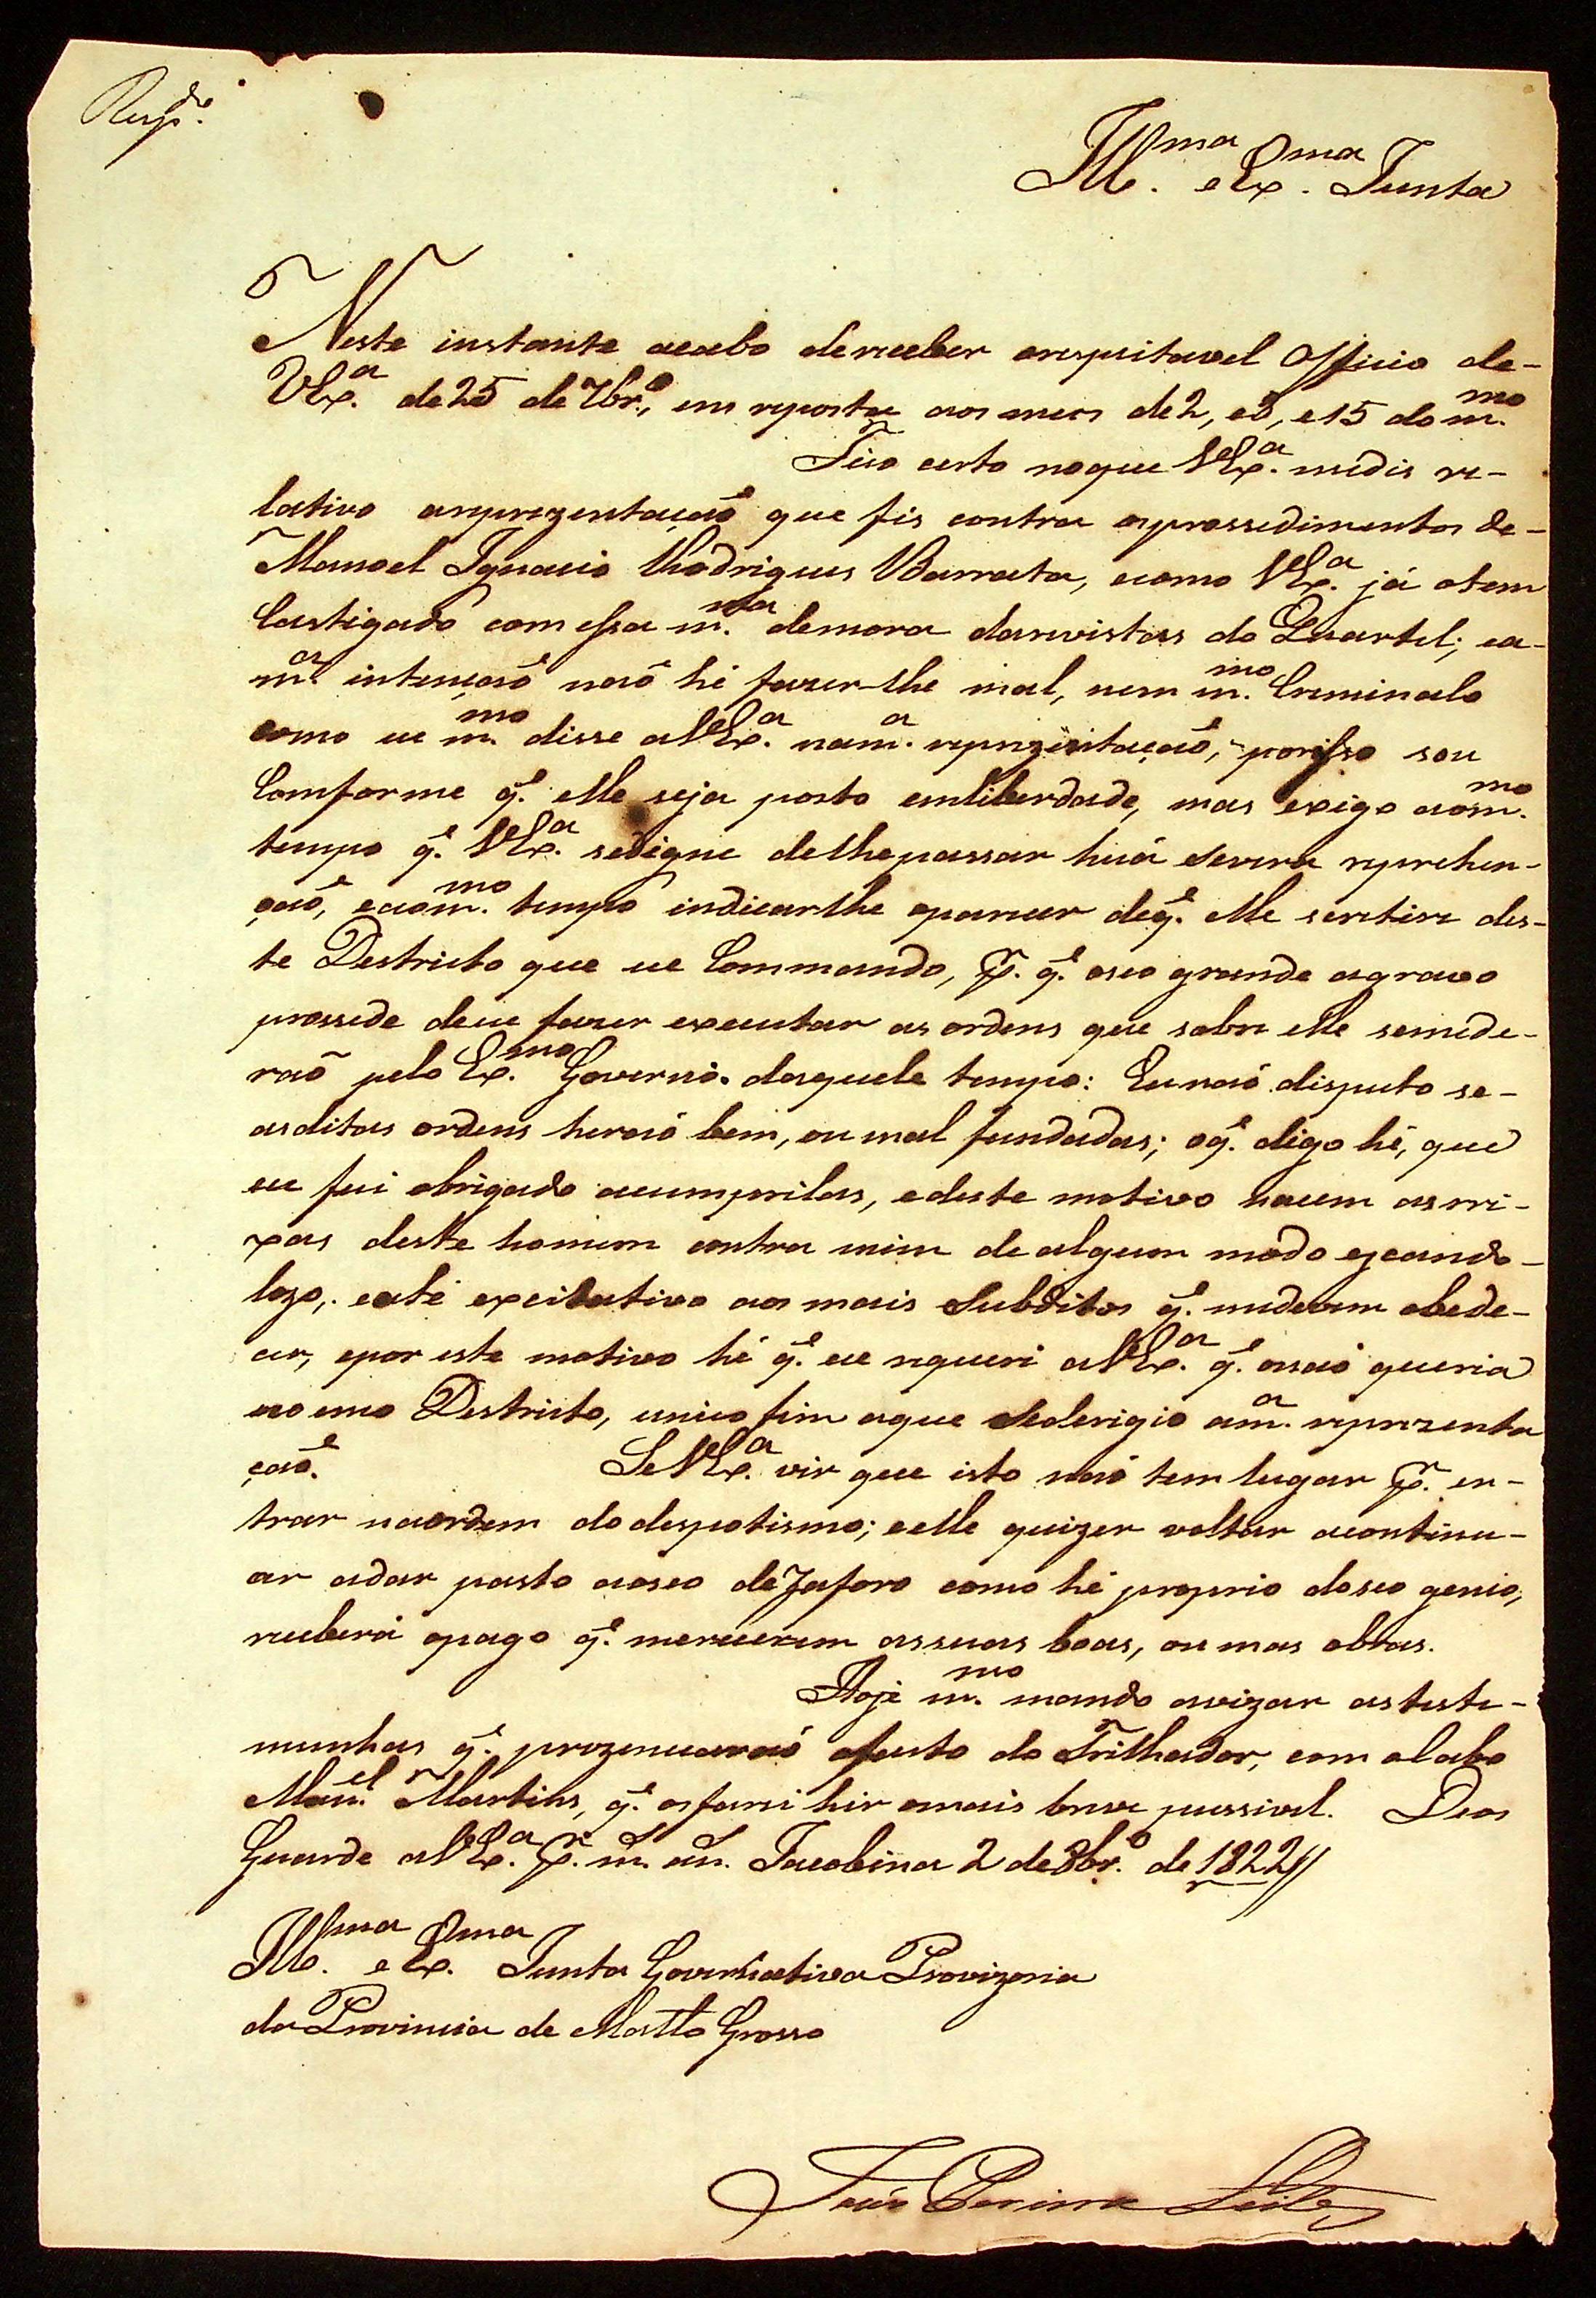 Resp.do
Ill.ma e Ex.ma Junta
Neste instante acabo dereceber orespeitavel Officio de-
VEx.a de 25 de 7br.o, em reposta aos meus de 2, e 3, e 15 do m.mo
Fico certo noque VEx.a mediz re-
lativo arreprezentaçaõ que fis contra osprossedimentos de-
Manoel Ignacio Rodrigues Barrata, ecomo VEx.a já otem
Castigado com essa m.ma demora darevistas do Quartel; ea-
m.a intençaõ naõ hé fazer-lhe mal, nem m.mo Criminalo
como eu m.mo disse aVEx.a nam.a reprezentaçaõ, porisso sou
Comforme q.e elle seja posto emliberdade, mas exigo aom.mo
tempo q.e VEx.a sedigne delhepassar huá severa reprehen-
çaõ, eaom.mo tempo indicarlhe oparecer deq.e elle seretire des-
te Destricto que eu Commando, p.r q.e oseo grande agravo
prossede deeu fazer executar as ordens que sobre elle semede-
raõ pelo Ex.mo Governo daquele tempo: Eunaõ disputo se-
asditas ordens heraõ bem, ou mal fundadas; oq.e digo hé, que
eu fui obrigado acumprilas, edeste motivo nacem asrri-
xas deste homem contra mim de algum modo escanda-
lozo, eaté excitativo aos mais Subditos q.e medevem obede-
cer, epor este motivo hé q.e eu requeri aVEx.a q.e onaõ queria
no meo Destricto, unico fim aque sederigio am.a reprezenta
çaõ. SeVEx.a vir que isto naõ tem lugar p.r en-
trar naordem dodespotismo; eelle quizer voltar acontinu-
ar adar pasto aoseo deZaforo como hé proprio doseo genio,
receberá opago q.e merecerem assuas boas, ou mas obras.
Hoje m.mo mando avizar asteste-
munhas q.e prezenciaraõ ofacto do Trilhador, com olabo
Man.el Martins, q.e osfarei hir omais breve pussivel. Deos
Guarde aVEx.a p.r m.s an.s Jacobina 2 de8br.o de 1822//
Ill.ma e Ex.ma Junta Governativa Provizoria
da Provincia de Matto Grosso
João Pereira Leite